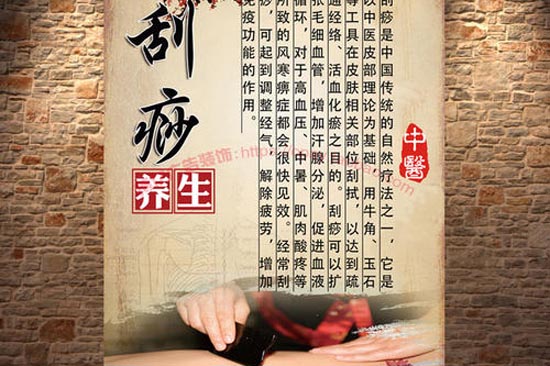 中醫
刮痧是中国传统的自然疗法之一，它是
以中医皮部理论为基础，用牛角、玉石
等工具在皮肤相关部位刮拭，以达到疏
通经络、活血化瘀之目的。刮痧可以扩
张毛细血管，增加汗腺分泌，促进血液
循环，对于高血压、中暑、肌肉酸疼等
所致的风寒痹症都会很快见效。经常刮
痧，可起到调整经气，解除疲劳，增加
免疫功能的作用。
刮痧
养生